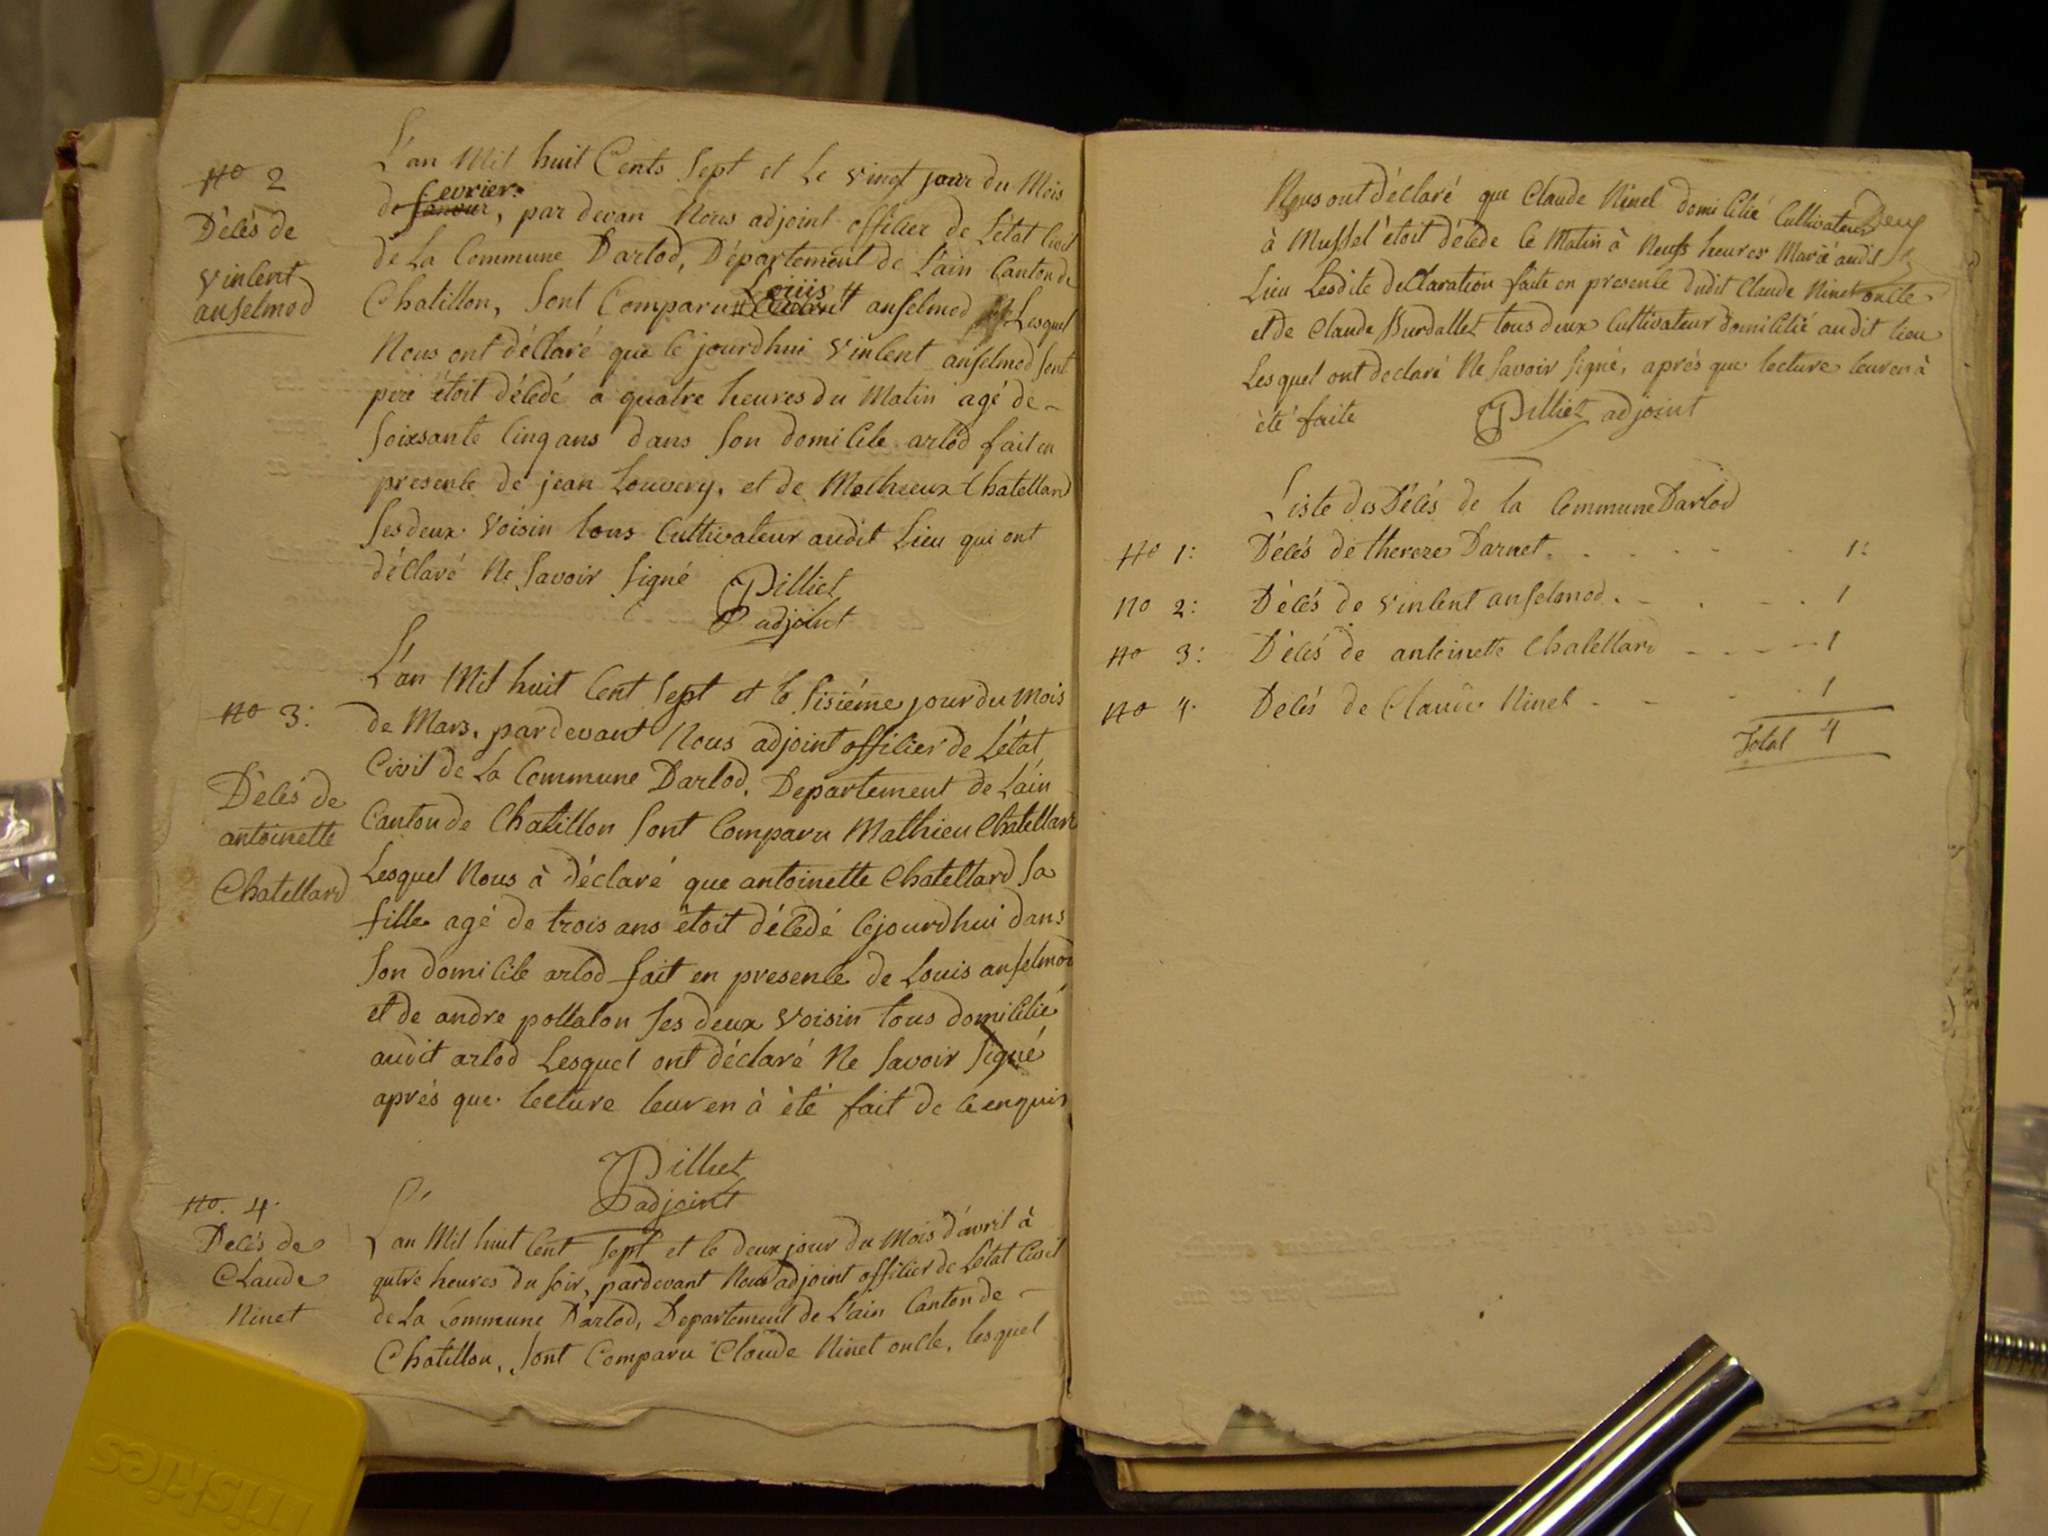 No 2
Décés de
Vincent
anselmod
L'an Mil huit Cents Sept et Le vingt jour du Mois
de janvier fevrier, par devan Nous adjoint officier de L'état Civil
de La Commune Darlod, Département de L'ain Canton de
Chatillon, Sont Comparu Louis anselmod Lesquel
Nous ont déclaré que le jourdhui Vincent anselmod sont
pere étoit décédé a quatre heures du Matin agé de
soixsante Cinq ans dans Son domicile arlod fait en
presence de jean Louvery, et de Mathieux Chatellard
Ses deux Voisin tous Cultivateur audit Lieu qui ont
déclaré Ne Savoir Signé Pilliet
adjoint
No 3:
Décés de
antoinette
Chatellard
L'an Mil huit Cent Sept et le Sisiéme jour du Mois
de Mars, pardevant Nous adjoint officier de L'état
Civil de La Commune Darlod, Departement de L'ain
Canton de Chatillon Sont Comparu Mathieu Chatellard
Lesquel Nous à déclaré que antoinette Chatellard Sa
fille agé de trois ans étoit décédé Cejourdhui dans
Son domicile arlod fait en presence de Louis anselmod
et de andre pottalon Ses deux Voisin tous domicilié
audit arlod Lesquel ont déclaré Ne Savoir Signé
aprés que lecture leur en à été fait de ce enquis
Pilliet
adjoint
No. 4
Decés de
Claude
Ninet
L'an Mil huit Cent Sept et le deux jour du Mois d'avril à
qutre heures du Soir, pardevant Nous adjoint officier de L'état Civil
de La Commune Darlod, Departement de L'ain Canton de
Chatillon, Sont Comparu Claude Ninet oncle, lesquel
Nous ont déclaré que Claude Ninet domicilié Cultivateur
à Mussel étoit décédé le Matin à Neufs heures Marié audit
Lieu Lesdite declaration faite en presence dudit Claude Ninet oncle
et de Claude Burdallet tous deux Cultivateur domicilié audit lieu
Lesquel ont declaré Ne Savoir Signé, aprés que lecture leur en à
été faite Pilliet adjoint
Liste des Décés de la Commune Darlod
No 1: Décés de thereze Darnet 1:
No 2: Décés de Vincent anselmod 1
No 3: Décés de antoinette Chatellard 1
No 4 Decés de Claude Ninet 1
Total 4